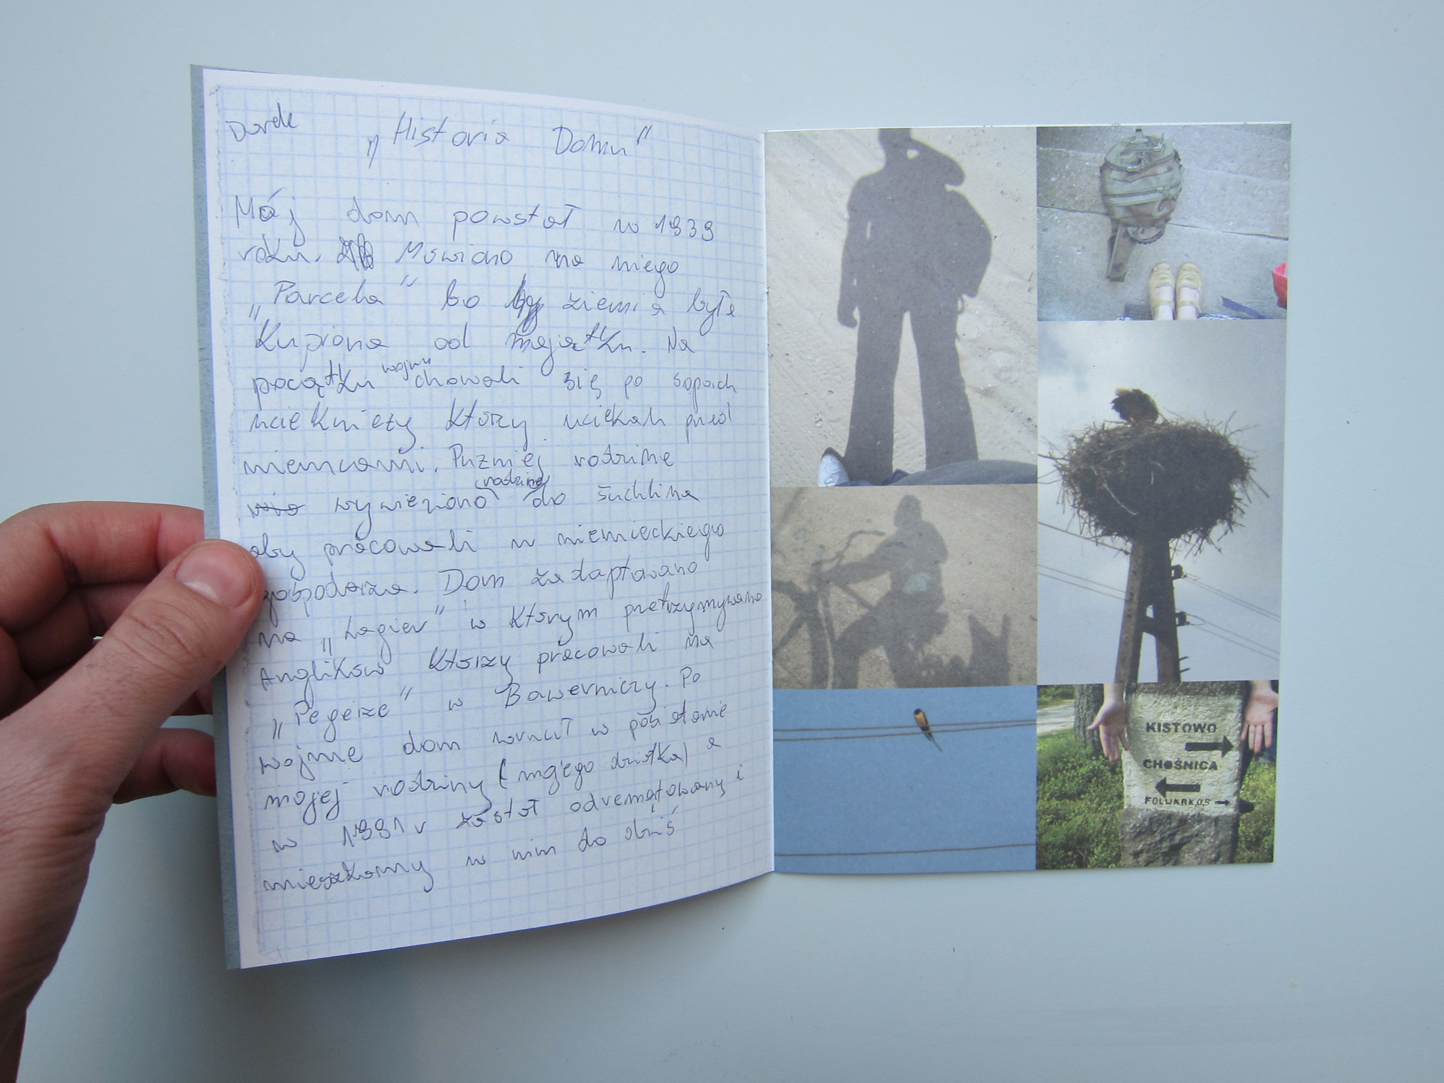 Darek
„Historia Domu"
Mój dom powstał w 1939
roku. Mówiono na niego
„Parcela" bo ziemia była
Kupiona od majątku. Na
początku wojny chowali się po sopach
uciekniezy którzy uciekali przed
niemcami. Puźniej rodzine
wywieziono do Suchlina
aby pracowali u niemieckiego
gospodarza. Dom zadaptowano
na „Łagier" w którym pretrzymywano
Anglików Którzy pracowali na
„Pegeże" w Bawerniczy. Po
wojnie dom wrucił w posiadanie
mojej rodziny (mojego dziadka) a
w 1991 r został odremątowany i
mieszkamy w nim do dziś
KISTOWO
CHOŚNICA
FOLWARKOS